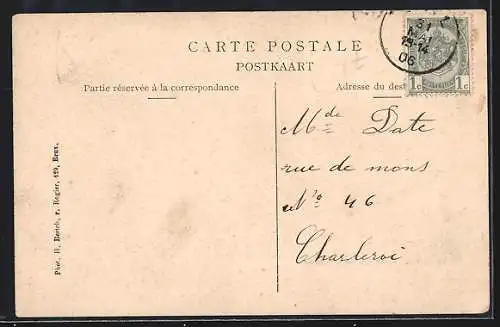 CARTE POSTALE
POSTKAART
Partie réservée à la correspondance
Adresse du dest
31
MAI
13-14
06
1c 1c
Mde Date
rue de mons
No 46
Charleroi
Phot. H. Bertels, r. Rogier, 429, Brux.